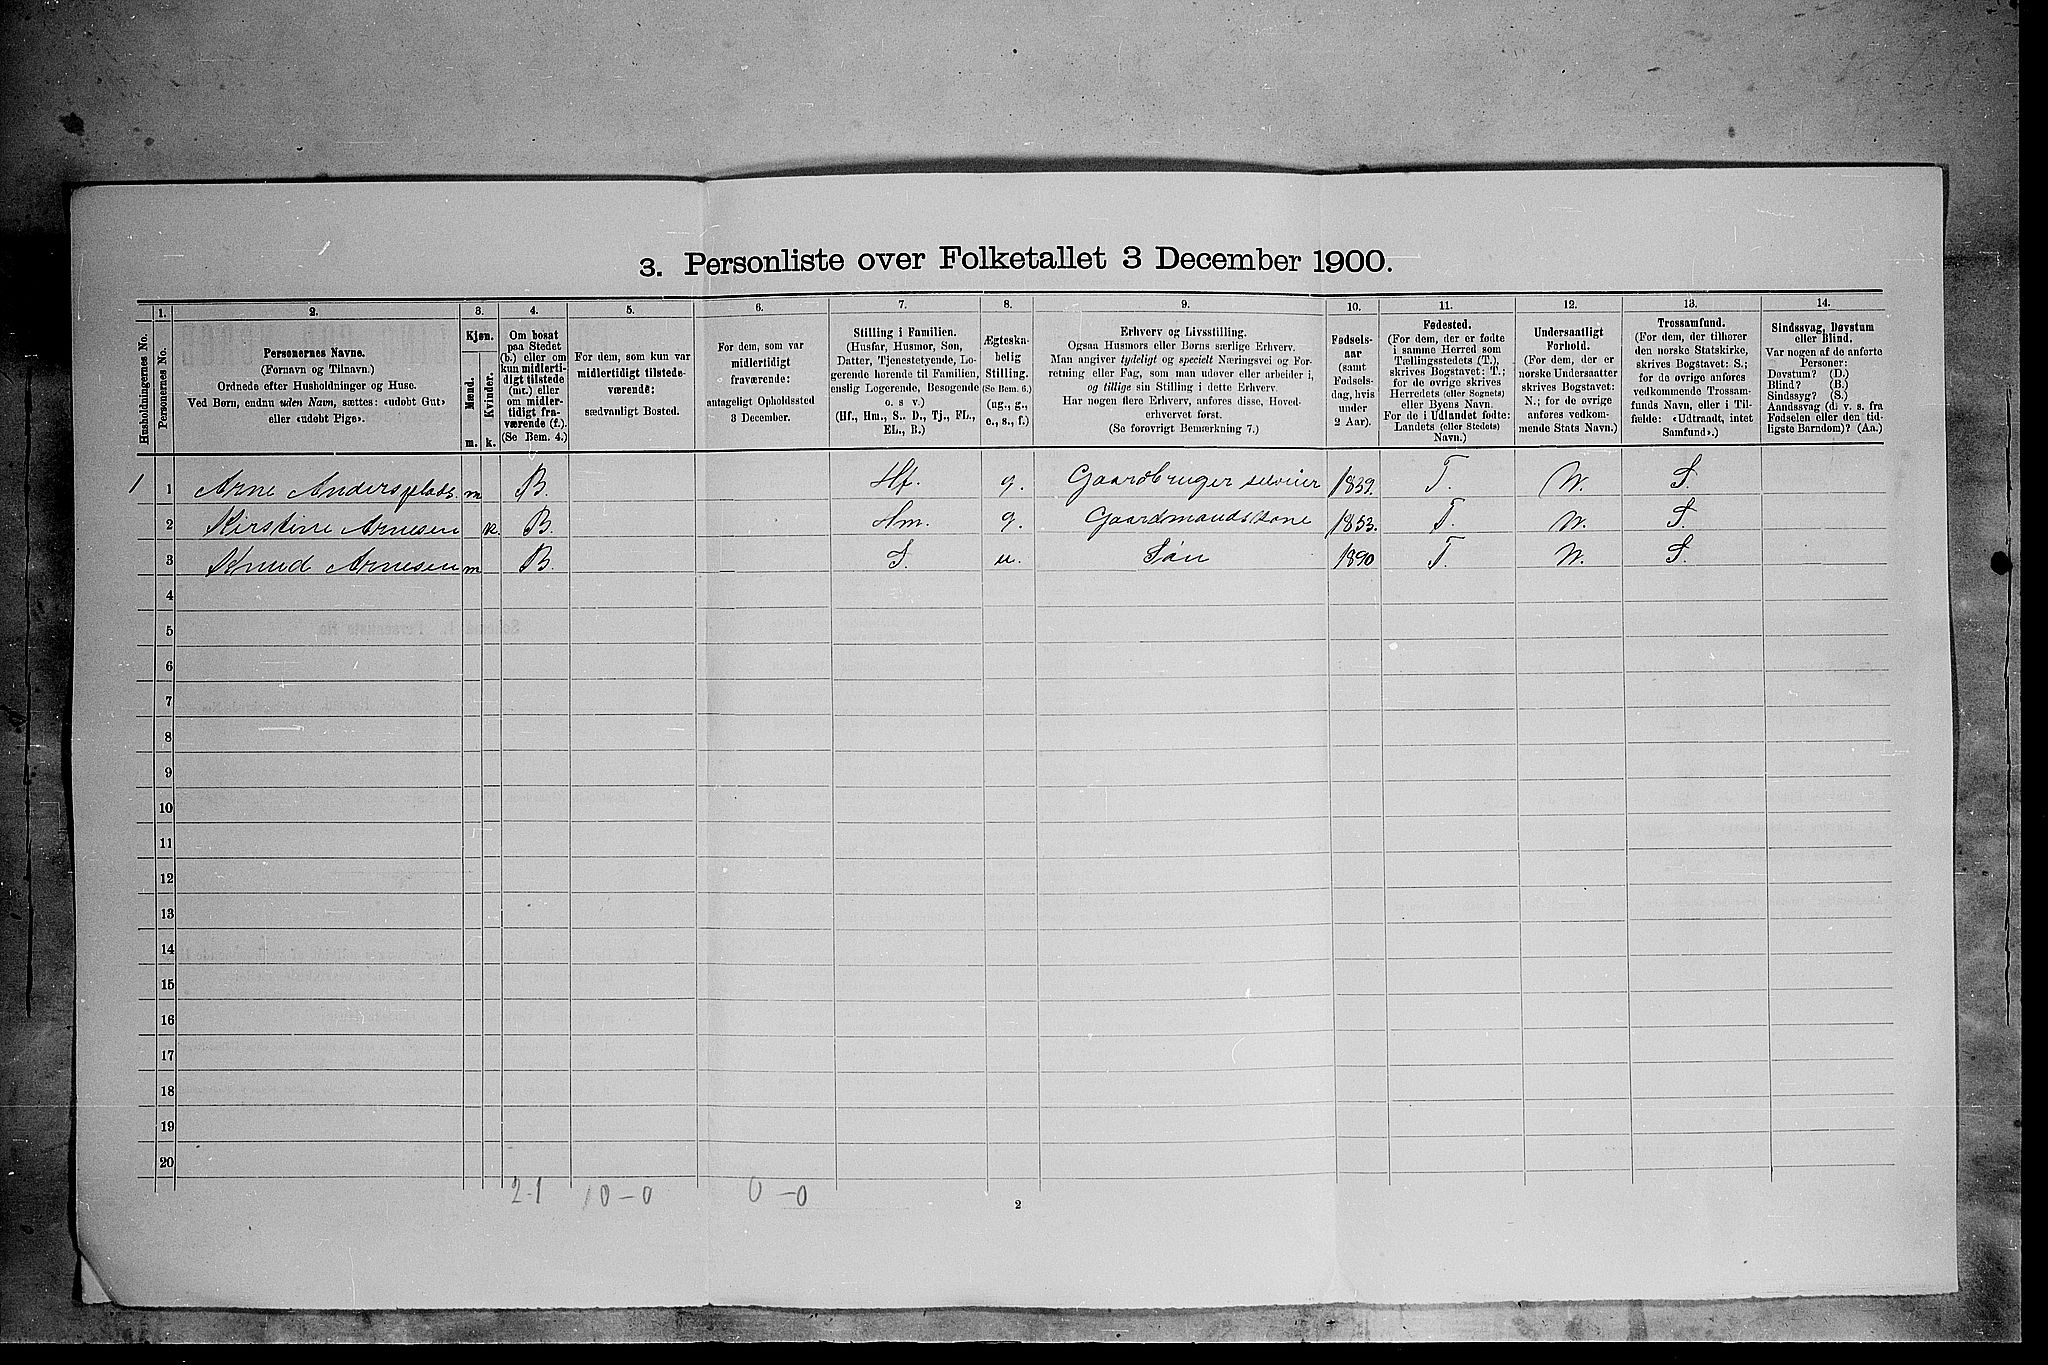 3. Personliste over Folketallet 3 December 1900.
Husholdningernes No.
1.
Personernes No.
2.
Personernes Navne.
(Fornavn og Tilnavn.)
Ordnede efter Husholdninger og Huse.
Ved Børn, endnu uden Navn, sættes: «udøbt Gut»
eller «udøbt Pige».
3.
Kjøn.
Mænd.
Kvinder.
m.
k.
4.
Om bosat
paa Stedet
(b.) eller om
kun midlerti-
digt tilstede
(mt.) eller
om midler-
tidigt fra-
værende (f.).
(Se Bem. 4.)
5.
For dem, som kun var
midlertidigt tilstede-
værende:
sædvanligt Bosted.
6.
For dem, som var
midlertidigt
fraværende:
antageligt Opholdssted
3 December.
7.
Stilling i Familien.
(Husfar, Husmor, Søn,
Datter, Tjenestetyende, Lo-
gerende hørende til Familien,
enslig Logerende, Besøgende
o. s v.)
(Hf., Hm., S., D., Tj., FL.,
EL., B.)
8.
Ægteska-
belig
Stilling.
(Se Bem. 6.)
(ug., g.,
e., s., f.)
9.
Erhverv og Livsstilling.
Ogsaa Husmors eller Børns særlige Erhverv.
Man angiver tydeligt og specielt Næringsvei og For-
retning eller Fag, som man udøver eller arbeider i,
og tillige sin Stilling i dette Erhverv.
Har nogen flere Erhverv, anføres disse, Hoved-
erhvervet først.
(Se forøvrigt Bemærkning 7.)
10.
Fødsels-
aar
(samt
Fødsels-
dag, hvis
under
2 Aar).
11.
Fødested.
(For dem, der er fødte
i samme Herred som
Tællingsstedets (T.),
skrives Bogstavet: T.;
for de øvrige skrives
Herredets (eller Sognets)
eller Byens Navn.
For de i Udlandet fødte:
Landets (eller Stedets)
Navn.)
12.
Undersaatligt
Forhold.
(For dem, der er
norske Undersaatter
skrives Bogstavet:
N.; for de øvrige
anføres vedkom-
mende Stats Navn.)
13.
Trossamfund.
(For dem, der tilhører
den norske Statskirke,
skrives Bogstavet: S.;
for de øvrige anføres
vedkommende Trossam-
funds Navn, eller i Til-
fælde: «Udtraadt, intet
Samfund».)
14.
Sindssvag, Døvstum
eller Blind.
Var nogen af de anførte
Personer:
Døvstum? (D.)
Blind? (B.)
Sindssyg? (S.)
Aandssvag (d. v. s. fra
Fødselen eller den tid-
ligste Barndom)? (Aa.)
1 1 Arne Andersplads. m B. Hf. g. Gaardbruger selveier 1839. T. N. S.
2 Kirstine Arnesen k. B. Hm. g. Gaardmandskone 1853. T. N. S.
3 Knud Arnesen m B. S. u. Søn 1890 T. N. S.
4
5
6
7
8
9
10
11
12
13
14
15
16
17
18
19
20
2-1 0-0 0-0
2